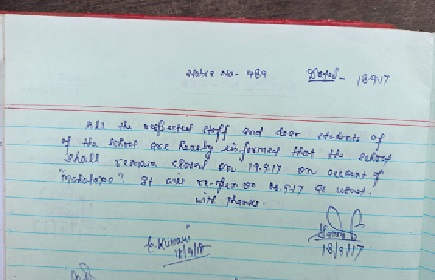 Notice No - 489 Dated - 18.9.17
All the respected staff and dear students of
of the school are hereby informed that the school
shall remain closed on 19.9.17 on account of
"Mahalaya". It will re-open on as usual.
with thanks.
G. Kumari
18/9/17